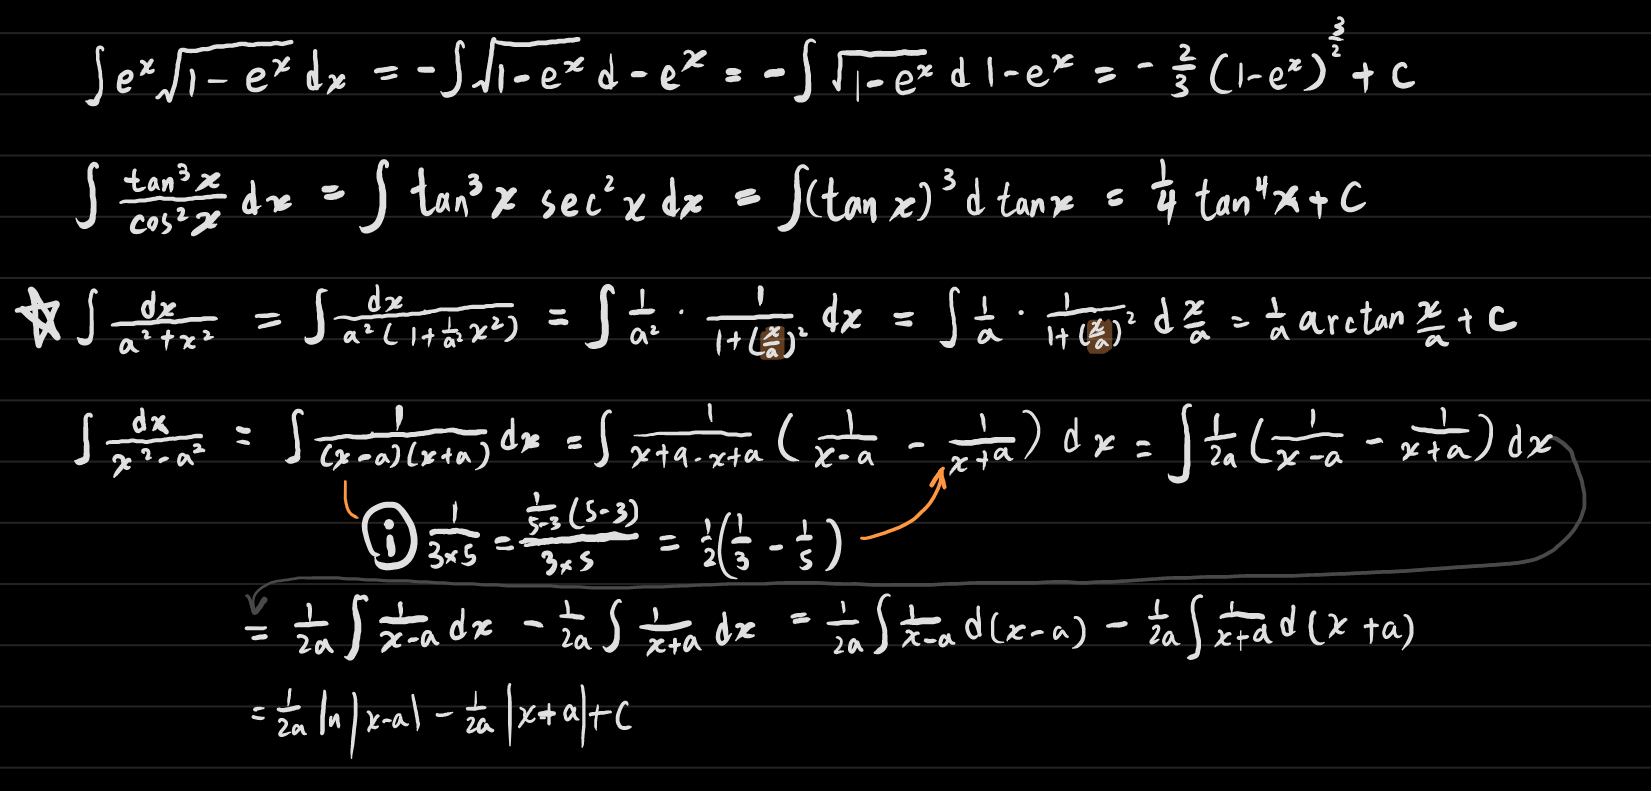 ∫ e^x √(1 - e^x) dx = -∫ √(1 - e^x) d - e^x = -∫ √(1 - e^x) d 1 - e^x = - 2/3 (1 - e^x)^(3/2) + C
∫ tan³x/cos²x dx = ∫ tan³x sec²x dx = ∫ (tan x)³ d tan x = 1/4 tan⁴x + C
☆ ∫ dx/(a² + x²) = ∫ dx/(a²(1 + 1/a² x²)) = ∫ 1/a² · 1/(1 + (x/a)²) dx = ∫ 1/a · 1/(1 + (x/a)²) d x/a = 1/a arctan x/a + C
∫ dx/(x² - a²) = ∫ 1/((x-a)(x+a)) dx = ∫ 1/(x+a-x+a) (1/(x-a) - 1/(x+a)) dx = ∫ 1/2a (1/(x-a) - 1/(x+a)) dx
ⓘ 1/(3×5) = (1/(5-3) (5-3))/(3×5) = 1/2 (1/3 - 1/5)
= 1/2a ∫ 1/(x-a) dx - 1/2a ∫ 1/(x+a) dx = 1/2a ∫ 1/(x-a) d(x-a) - 1/2a ∫ 1/(x+a) d(x+a)
= 1/2a ln|x-a| - 1/2a |x+a| + C